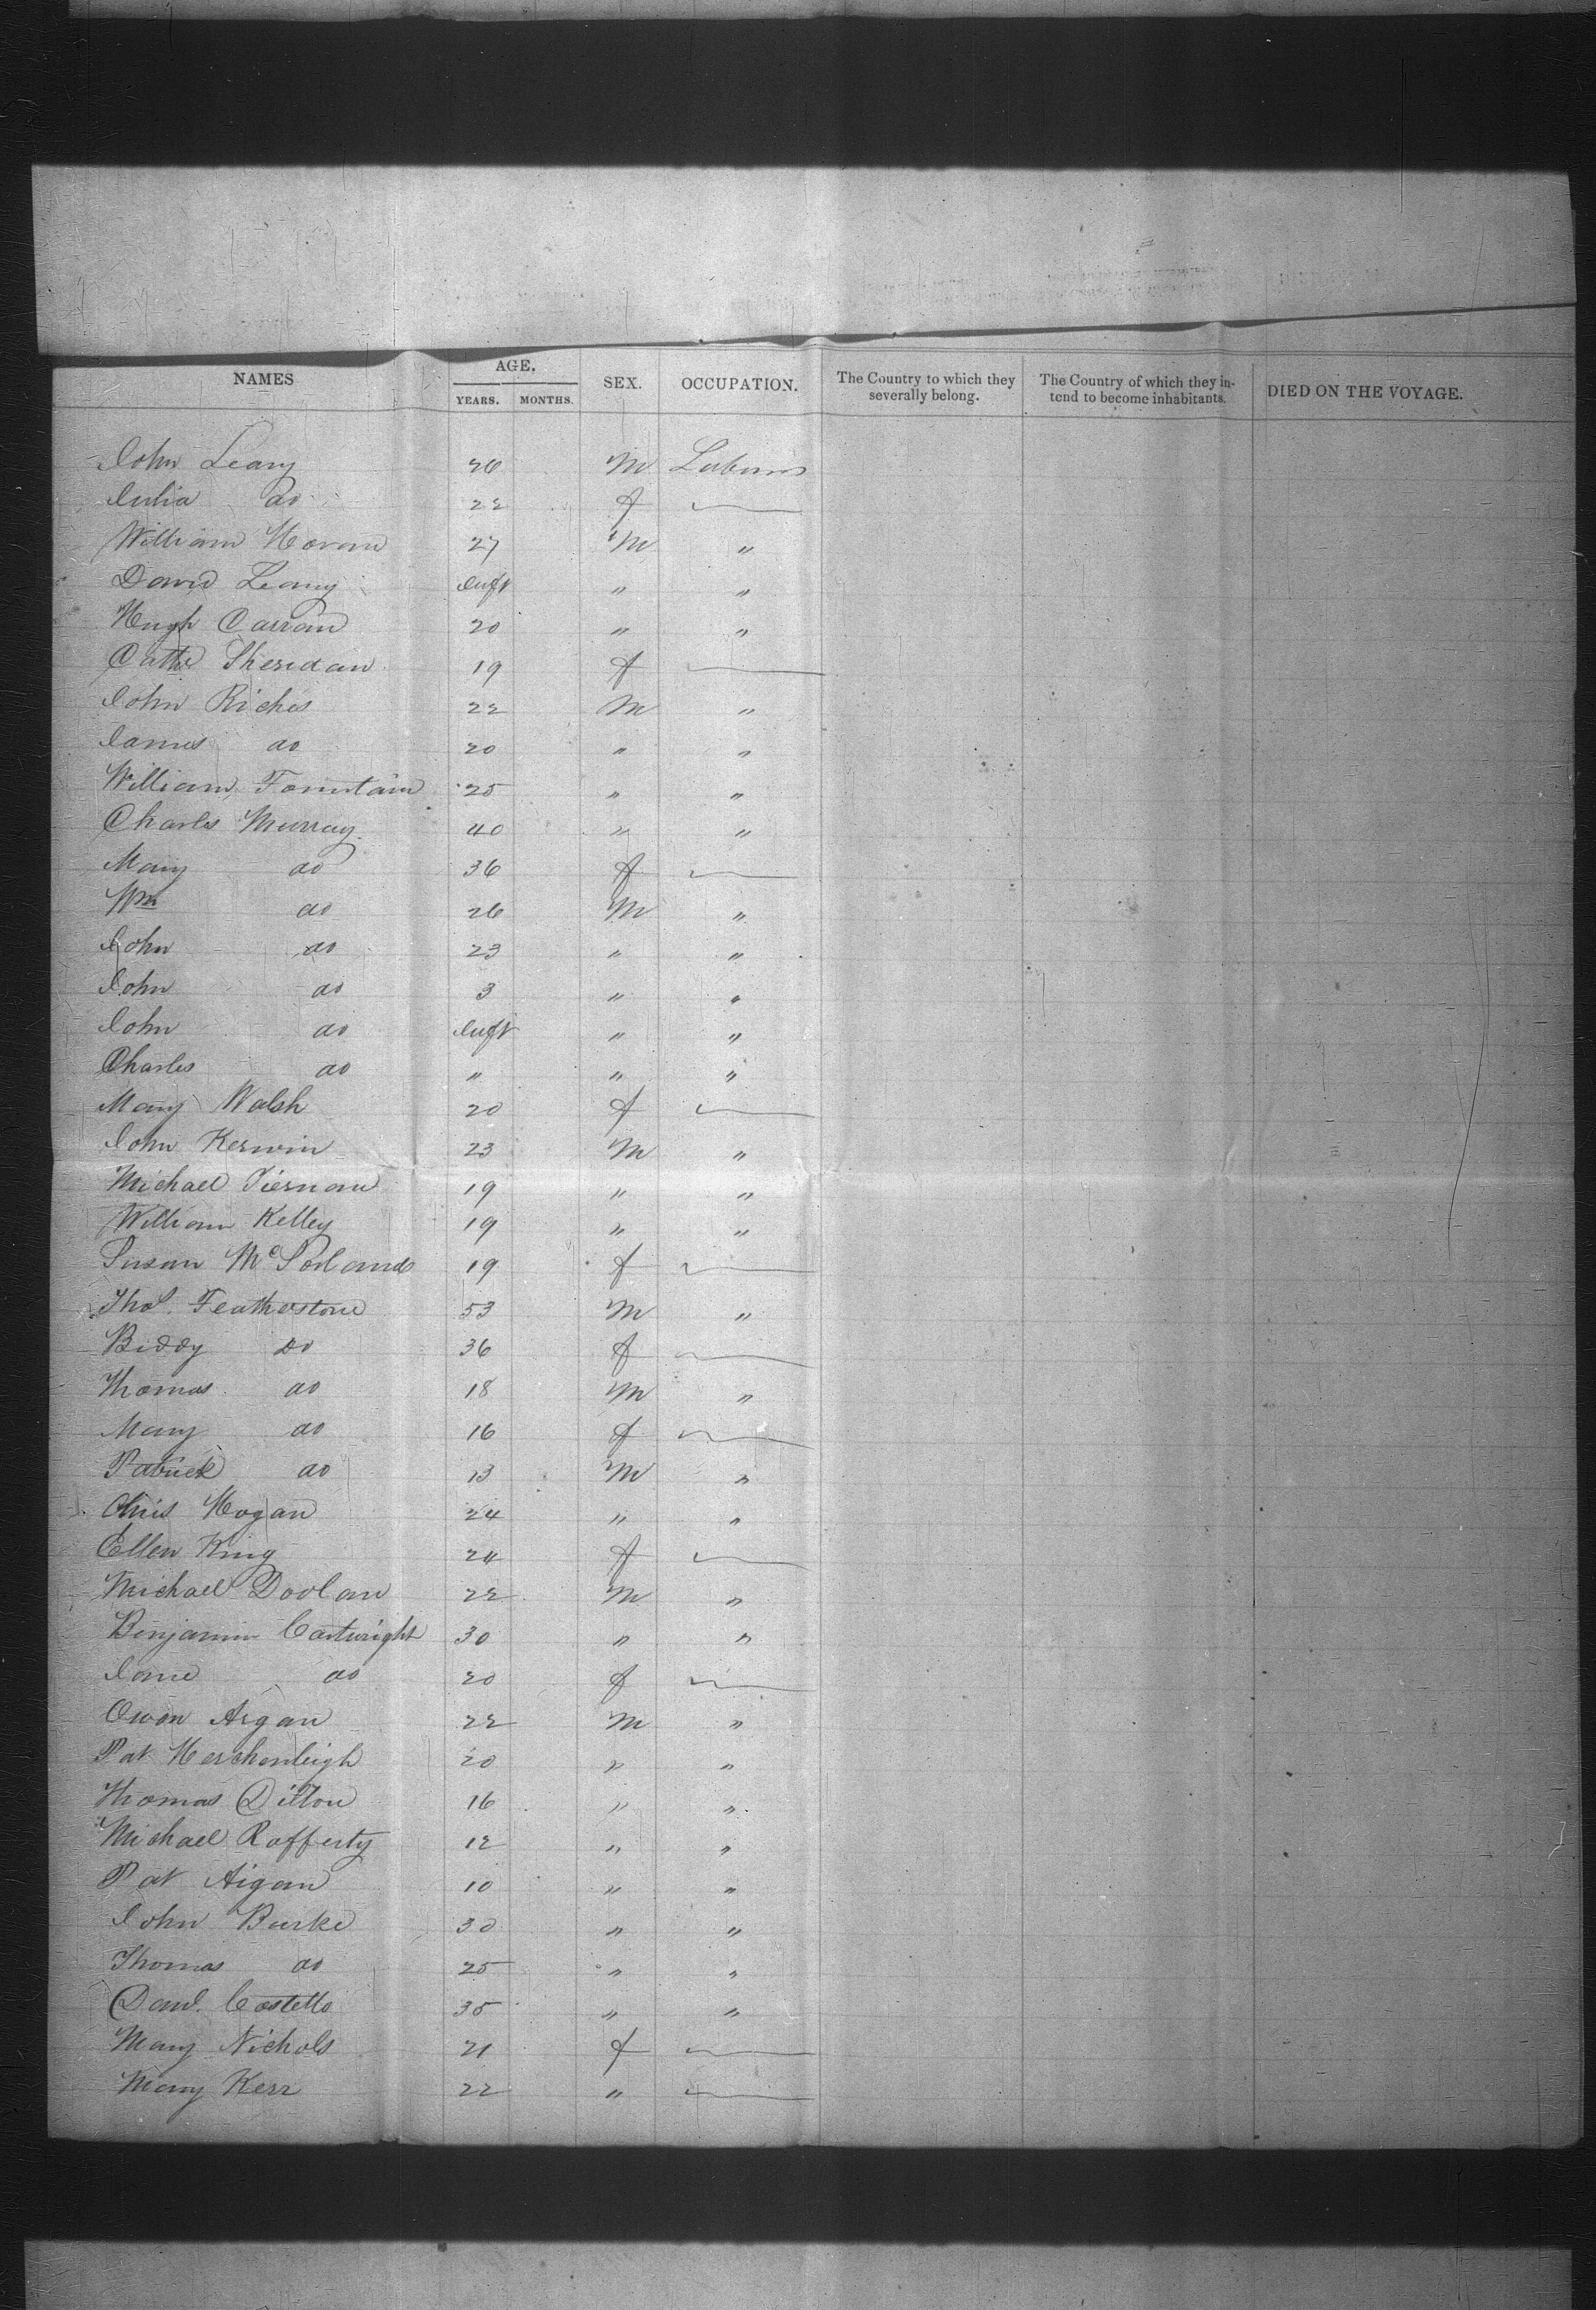 NAMES AGE. YEARS. MONTHS. SEX. OCCUPATION. The Country to which they severally belong. The Country of which they intend to become inhabitants. DIED ON THE VOYAGE.
John Leary 26 M
Julia do 22 f
William Horan 27 M "
David Leary Inft " "
Hugh Carran 20 " "
Cathe Sheridan 19 f
John Riches 22 M "
James do 20 " "
William Fountain 25 " "
Charles Murray 40 " "
Mary do 36 f
Wm do 26 M "
John do 23 " "
John do 3 " "
John do Inft " "
Charles do " " "
Mary Walsh 20 f
John Kerwin 23 M "
Michael Tiernan 19 " "
William Kelley 19 " "
Susan 19 f
Thos. Featherstone 53 M "
Biddy Do 36 f
Thomas do 18 M "
Mary do 16 f
Patrick do 13 M "
Chris Hogan 24 " "
Ellen King 24 f
Michael Doolan 22 M "
Benjamin Cartwright 30 " "
Jane do 20 f
Owen 22 M "
Pat 20 " "
Thomas Dillon 16 " "
Michael Rafferty 12 " "
Pat Aigan 10 " "
John Burke 30 " "
Thomas do 25 " "
Danl. Costello 35 " "
Mary Nichols 21 f
Mary Kerr 22 "